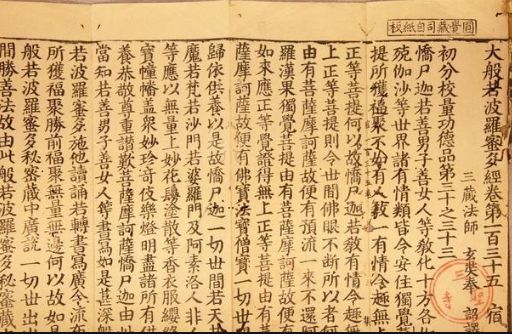 圓覺藏司自紙板
大般若波羅蜜多經卷第一百三十五 宿
三藏法師 玄奘奉 詔譯
初分校量功德品第三十之三十三
憍尸迦若善男子善女人等教化十方各
殑伽沙等世界諸有情類皆令安住獨覺菩
提所獲福聚不如有人教一有情令趣無上
正等菩提何以故憍尸迦若教有情令趣無
上正等菩提則令世間佛眼不斷所以者何
由有菩薩摩訶薩故便有預流一來不還阿
羅漢果獨覺菩提由有菩薩摩訶薩故便有
如來應正等覺證得無上正等菩提由有菩
薩摩訶薩故便有佛寶法寶僧寶一切世
歸依供養以是故憍尸迦一切世間若天若
魔若梵若沙門若婆羅門及阿素洛人非人
等應以無量上妙花鬘塗散等香衣服纓絡
寶幢幡蓋衆妙珍奇伎樂燈明盡諸所有供
養恭敬尊重讚歎菩薩摩訶薩憍尸迦由此
當知若善男子善女人等書寫如是甚深般
若波羅蜜多施他讀誦若轉書寫廣令流布
所獲福聚勝前福聚無量無邊何以故如是
般若波羅蜜多秘密藏中廣說一切世出世
間勝善法故由此般若波羅蜜多秘密藏
三聖寺